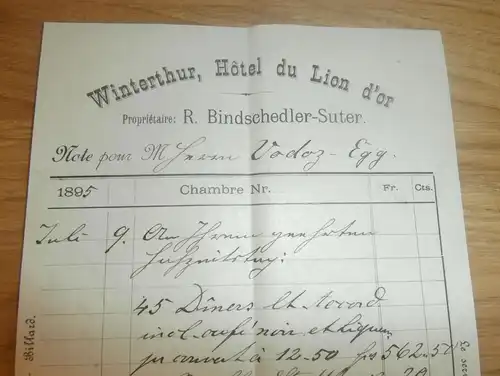 Winterthur, Hôtel du Lion d'or
Propriétaire: R. Bindschedler-Suter.
Note pour M Herrn Vodoz-Egg.
1895 Chambre Nr. Fr. Cts.
Juli 9. An Ihrem geehrten
Hochzeitstag:
45 Dîners lt. Accord
incl. café noir et liqueur
à 12-50 frs 562.50
29
Billard.